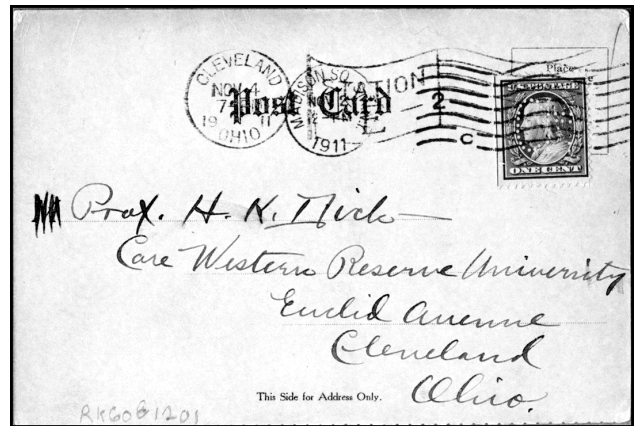 CLEVELAND
NOV 4
7-
1911
OHIO
MADISON SQ. STATION
1911
2
C
Post Card
Place
U.S. POSTAGE
ONE CENT
Prof. H. K.
Care Western Reserve University
Euclid Avenue
Cleveland
Ohio.
This Side for Address Only.